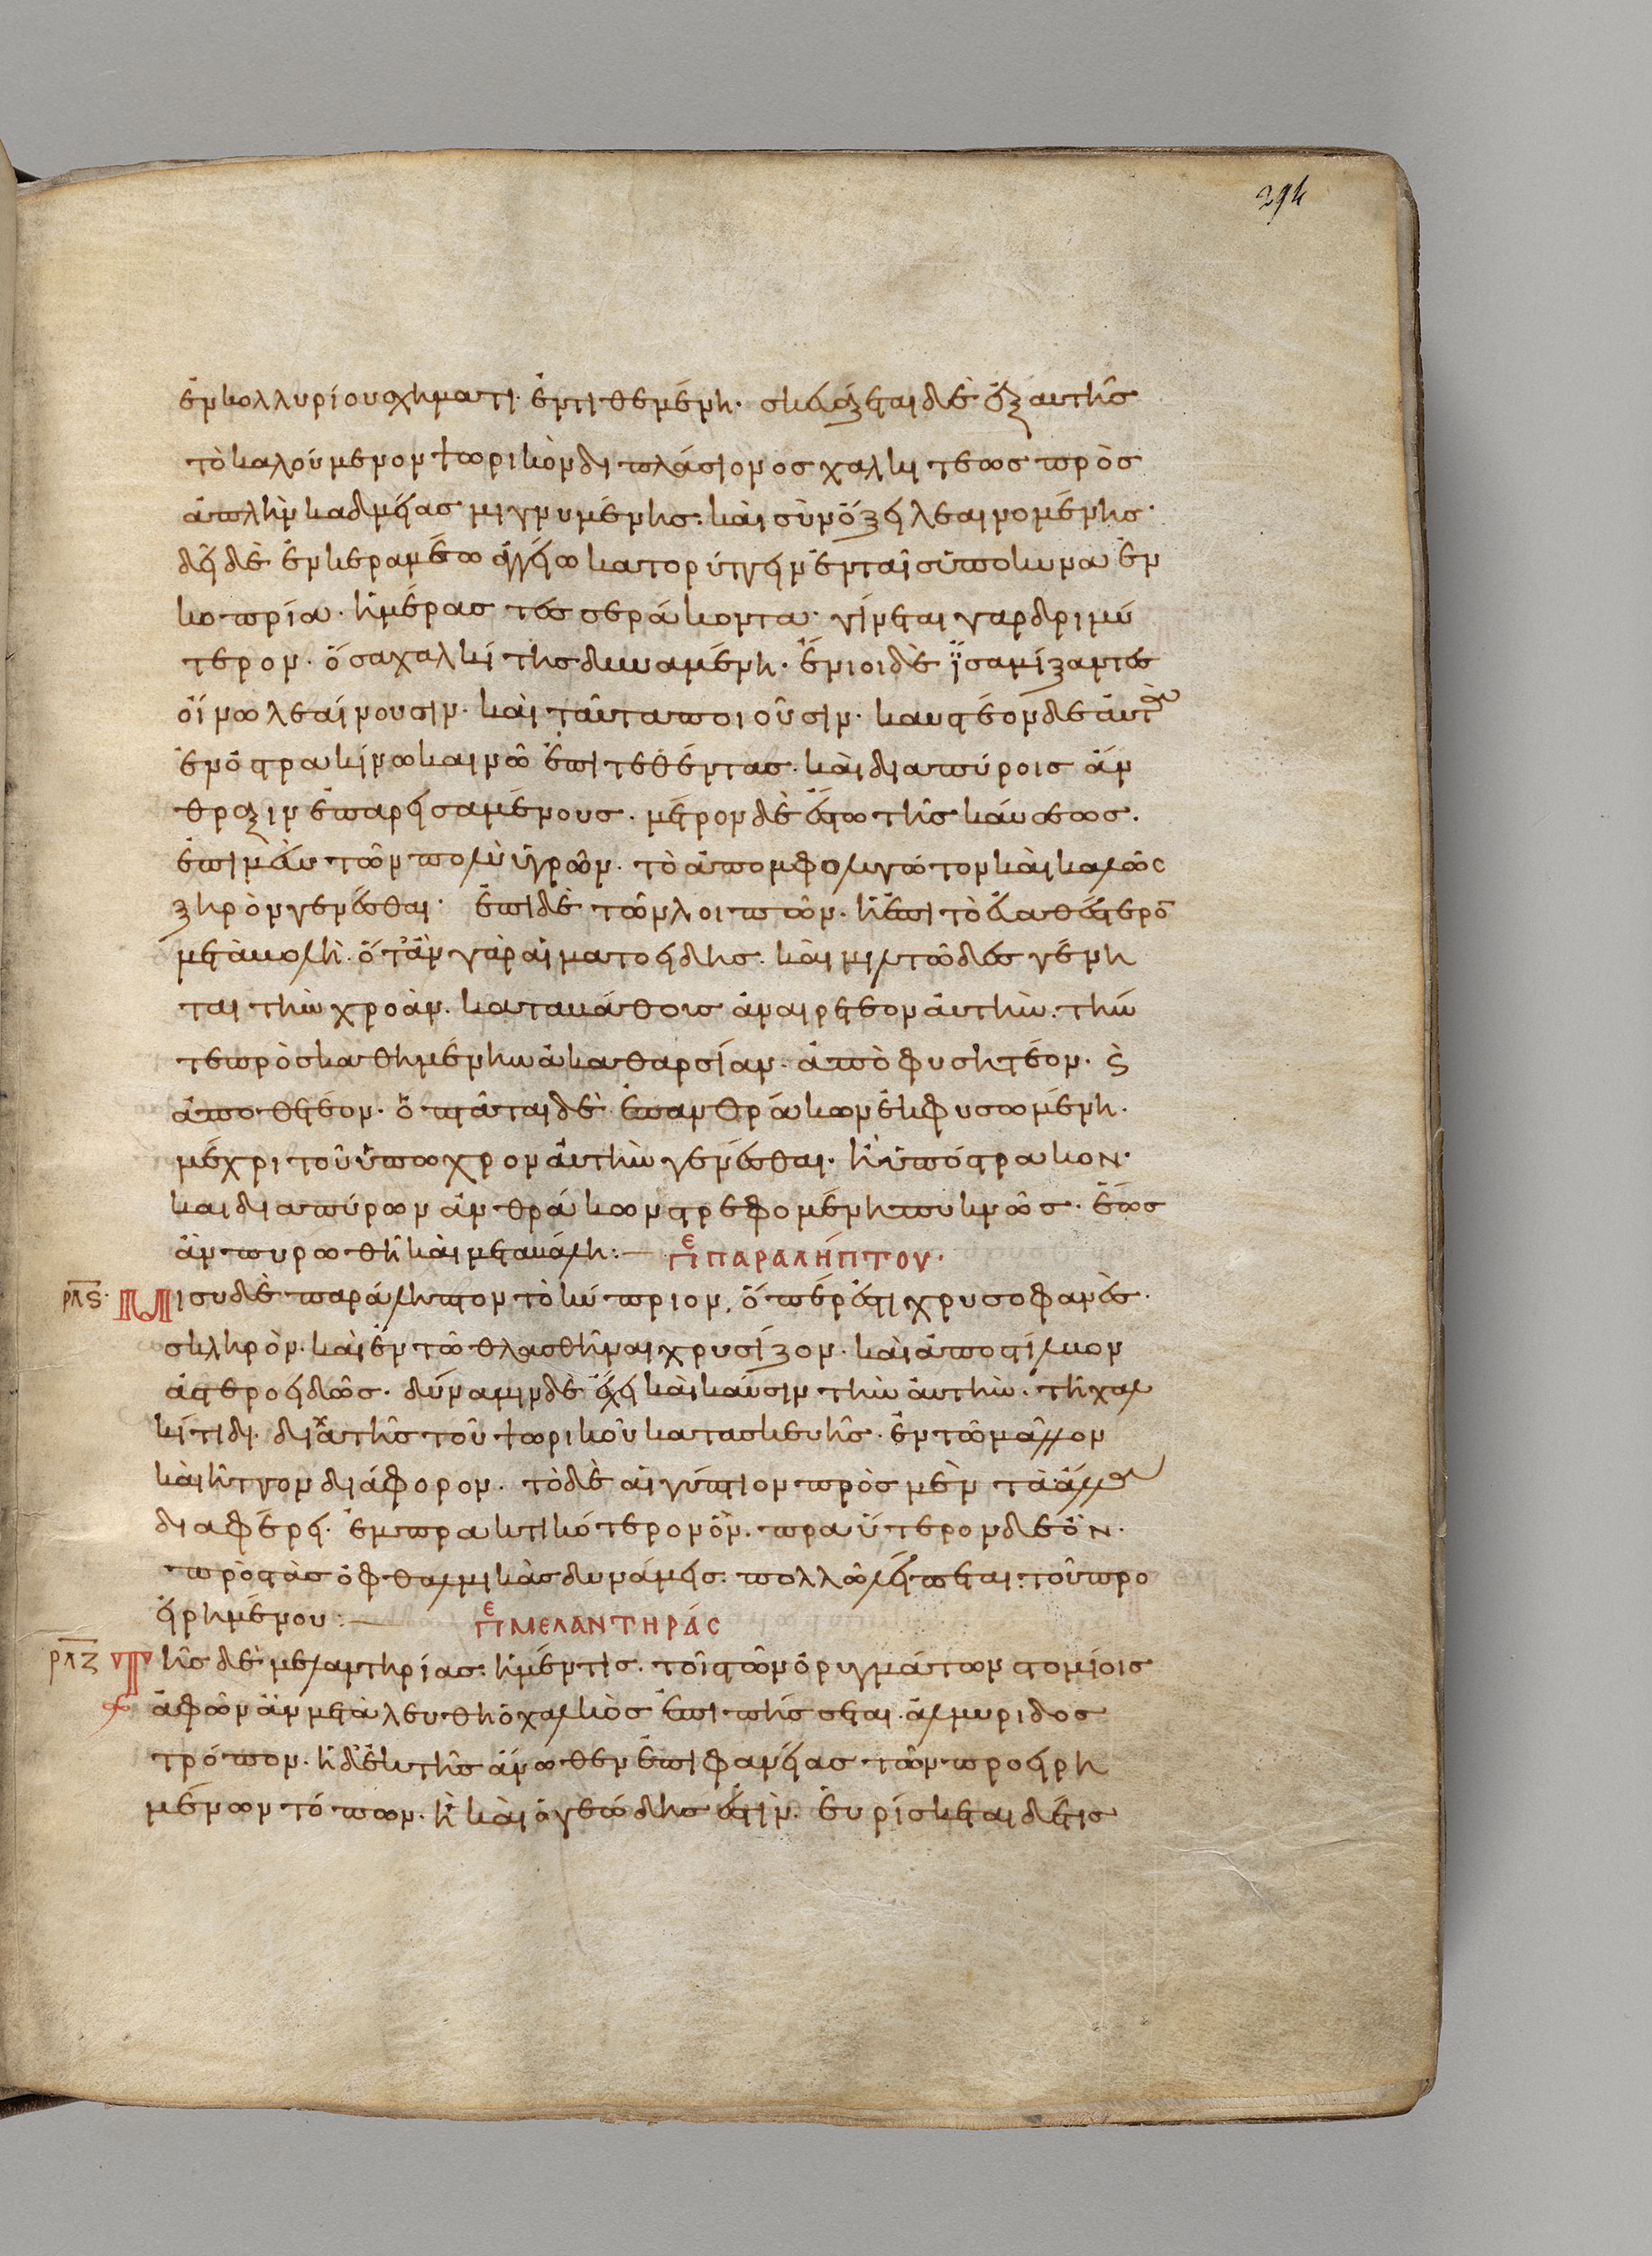 294
ἐν κολλυρίου σχήματι ἐντιθεμένη. σκευάζεται δὲ ἐξ αυτῆς
τὸ καλούμενον ψωρικὸν διπλασίονος χαλκίτεως πρὸς
ἁπλὴν καδμείας μιγνυμένης. καὶ σὺν ὄξει λεαινομένης.
δεῖ δὲ ἐν κεραμέω ἀγγείω κατορύττειν ἐν ταῖς ὑπὸ κύνα ἐν
κοπρία. ἡμέρας τεσσεράκοντα. γίνεται γαρ δριμύ
τερον. ὅσα χαλκίτης δυναμένη. ἔνιοι δὲ ἴσα μίξαντες
οἴνω λεαίνουσιν. καὶ ταῦτα ποιοῦσιν. καυστέον δὲ αὐτὰ
ἐν ὀστρακίνω καινῶ ἐπιτεθέντας. καὶ διαπύροις ἄν
θραξιν ἐπαρεισαμένους. μέτρον δὲ ἔστω τῆς καύσεως.
ἐπὶ μὲν τῶν πολὺ ὑγρῶν. τὸ ἀπομφολυγώτον καὶ καλῶς
ξηρὸν γενέσθαι. ἐπὶ δὲ τῶν λοιπῶν. ἡ ἐπὶ τὸ εὐανθέστερον
μεταβολή. ὅτ' ἂν γὰρ αἱματοειδης. καὶ μιλτῶδες γένη
ται τὴν χροὰν. καταμάθοις ἀναιρετέον ἀυτὴν. τὴν
τε προσκαθημένην ἀκαθαρσίαν. ἀποφυσητέον. καὶ
ἀποθετέον. ὀπτᾶται δὲ ἐπ' ανθράκων ἐκφυσωμένη.
μέχρι τοῦ ὕπωχρον ἀυτὴν γενέσθαι. ἢ ὑπ' ὄστρακον.
και διαπύρων ἀνθράκων στρεφομένη πυκνῶς. ἕως
ἂν πυρωθῆ καὶ μεταβάλη:— πε παραλήπτου.
ρλς. Μισυ δὲ παράληπτον τὸ κύπριον, ὅπέρ ἐστι χρυσοφανὲς.
σκληρὸν. καὶ ἐν τῶ θλασθῆναι χρυσίζον. καὶ ἀποστίλβον
ἀστεροειδῶς. δύναμιν δὲ ἔχει καὶ καύσιν τὴν ἀυτὴν. τῆ χαλ
κίτιδι. δίχα τῆς τοῦ ψωρικοῦ κατασκευῆς. ἐν τῶ μᾶλλον
καὶ ἧττον διάφορον. τὸ δὲ αἰγύπτιον πρὸς μὲν τὰ ἄλλα
διαφέρει. ἐμπρακτικότερον ὂν. πραΰτερον δὲ ὂν.
πρὸς τὰς ὀφθαλμικὰς δυνάμεις. πολλῶ λείπεται. τοῦ προ
ειρημένου:— πε μελαντηρίας
ρλζ Τῆς δὲ μελαντηρίας. ἡ μέν τις. τοῖς τῶν ὀρυγμάτων στομίοις
ἀφ' ὧν ἂν μεταλευθῆ ὁ χαλκὸς ἐπιπήσσεται. ἁλμυρίδος
τρόπον. ἡ δὲ ἐκ τῆς ἄνωθεν ἐπιφανείας τῶν προειρη
μένων τόπων. ἣ καὶ ὀγεώδης ἐστὶν. εὑρίσκεται δέ τις